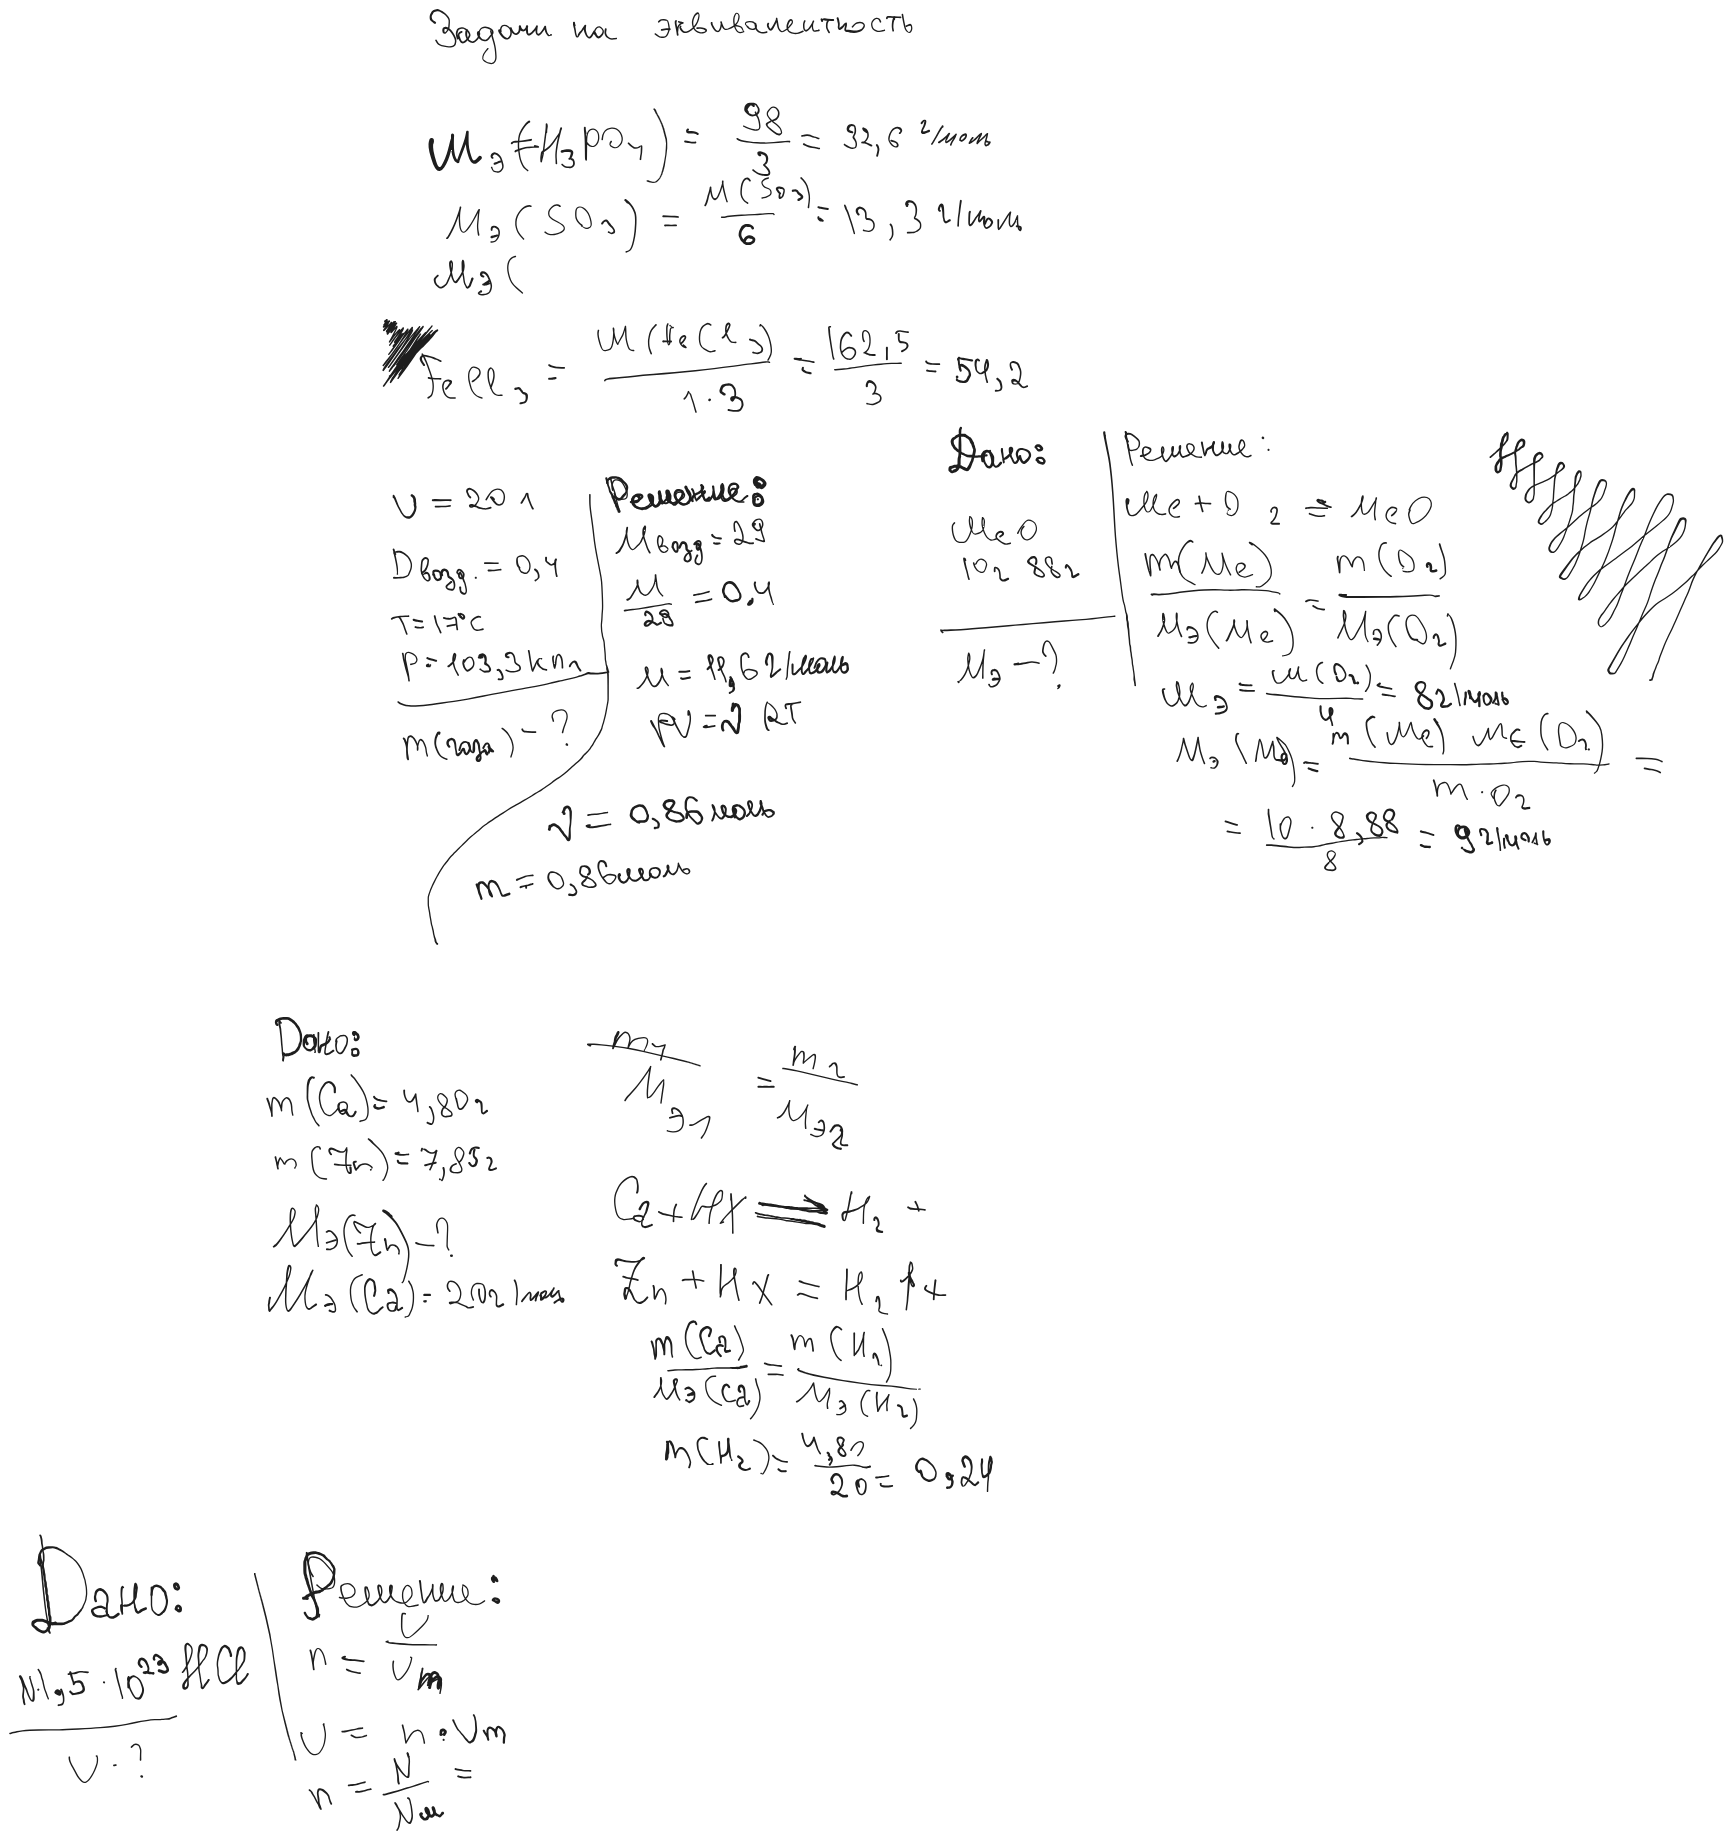 Задачи на эквивалентность
Mэ(H3PO4) = 98/3 = 32,6 г/моль
Mэ(SO3) = M(SO3)/6 = 13,3 г/моль
Mэ(
FeCl3 = M(FeCl3)/1·3 = 162,5/3 = 54,2
V = 20 л
Dвозд. = 0,4
T = 17°C
P = 103,3 кПа
m(газа) - ?
Решение:
Mвозд = 29
M/29 = 0,4
M = 11,6 г/моль
pV = νRT
ν = 0,86 моль
m = 0,86 моль
Дано:
MeO
10г 88г
Mэ - ?
Решение:
Me + O2 = MeO
m(Me)/Mэ(Me) = m(O2)/Mэ(O2)
Mэ = M(O2)/4 = 8 г/моль
Mэ(Me) = m(Me) Mэ(O2)/m·O2 =
= 10 · 8,88/8 = 9 г/моль
Дано:
m(Ca) = 4,80г
m(Zn) = 7,85г
Mэ(Zn) - ?
Mэ(Ca) = 20г/моль
m1/Mэ1 = m2/Mэ2
Ca + HX = H2 +
Zn + HX = H2↑ +
m(Ca)/Mэ(Ca) = m(H2)/Mэ(H2)
m(H2) = 4,80/20 = 0,24
Дано:
N·1,5·10^23 HCl
V - ?
Решение:
n = V/Vm
V = n · Vm
n = N/Nм =